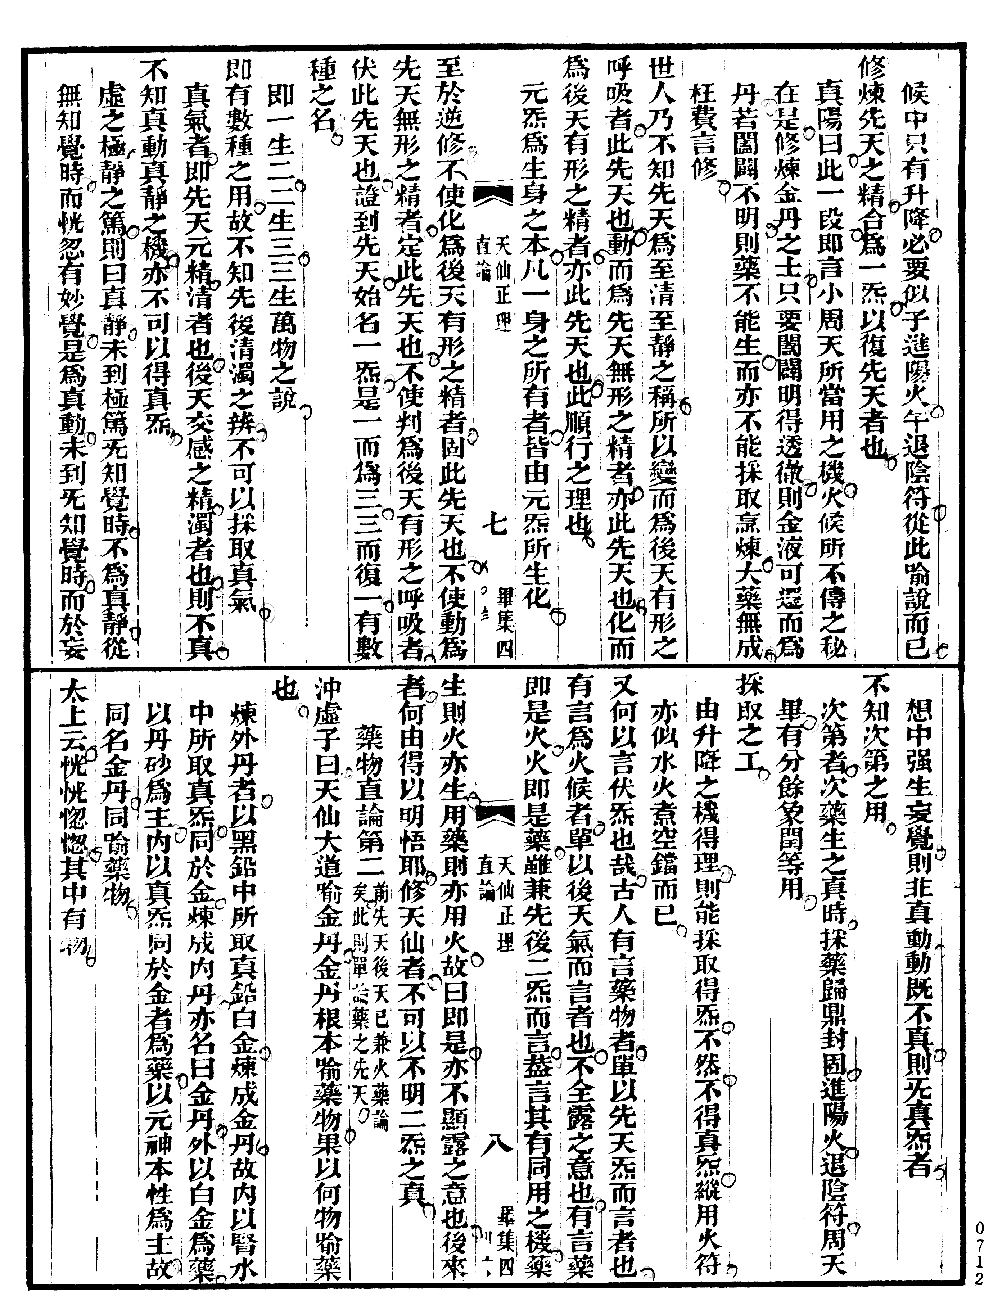 候中只有升降必要似子進陽火午退陰符從此喻說而已
修煉先天之精合爲一炁以復先天者也
真陽曰此一段即言小周天所當用之機火候所不傳之秘
在是修煉金丹之士只要闔闢明得透徹則金液可還而爲
丹若闔闢不明則藥不能生而亦不能採取烹煉大藥無成
枉費言修
世人乃不知先天爲至清至靜之稱所以變而爲後天有形之
呼吸者此先天也動而爲先天無形之精者亦此先天也化而
爲後天有形之精者亦此先天也此順行之理也
元炁爲生身之本凡一身之所有者皆由元炁所生化
天仙正理
直論
七
畢集四
至於逆修不使化爲後天有形之精者固此先天也不使動爲
先天無形之精者定此先天也不使判爲後天有形之呼吸者
伏此先天也證到先天始名一炁是一而爲三三而復一有數
種之名
即一生二二生三三生萬物之說
即有數種之用故不知先後清濁之辨不可以採取真氣
真氣者即先天元精清者也後天交感之精濁者也則不真
不知真動真靜之機亦不可以得真炁
虛之極靜之篤則曰真靜未到極篤旡知覺時不爲真靜從
無知覺時而恍忽有妙覺是爲真動未到旡知覺時而於妄
想中强生妄覺則非真動動既不真則旡真炁者
不知次第之用
次第者次藥生之真時採藥歸鼎封固進陽火退陰符周天
畢有分餘象閏等用
採取之工
由升降之機得理則能採取得炁不然不得真炁縱用火符
亦似水火煮空鐺而已
又何以言伏炁也哉古人有言藥物者單以先天炁而言者也
有言爲火候者單以後天氣而言者也不全露之意也有言藥
即是火火即是藥雖兼先後二炁而言葢言其有同用之機藥
天仙正理
直論
八
畢集四
生則火亦生用藥則亦用火故曰即是亦不顯露之意也後來
者何由得以明悟耶修天仙者不可以不明二炁之真
藥物直論第二前先天後天已兼火藥論
矣此則單論藥之先天
沖虛子曰天仙大道喻金丹金丹根本喻藥物果以何物喻藥
也
煉外丹者以黑鉛中所取真鉛白金煉成金丹故內以腎水
中所取真炁同於金煉成內丹亦名曰金丹外以白金爲藥
以丹砂爲主內以真炁同於金者爲藥以元神本性爲主故
同名金丹同喻藥物
太上云恍恍惚惚其中有物
0712